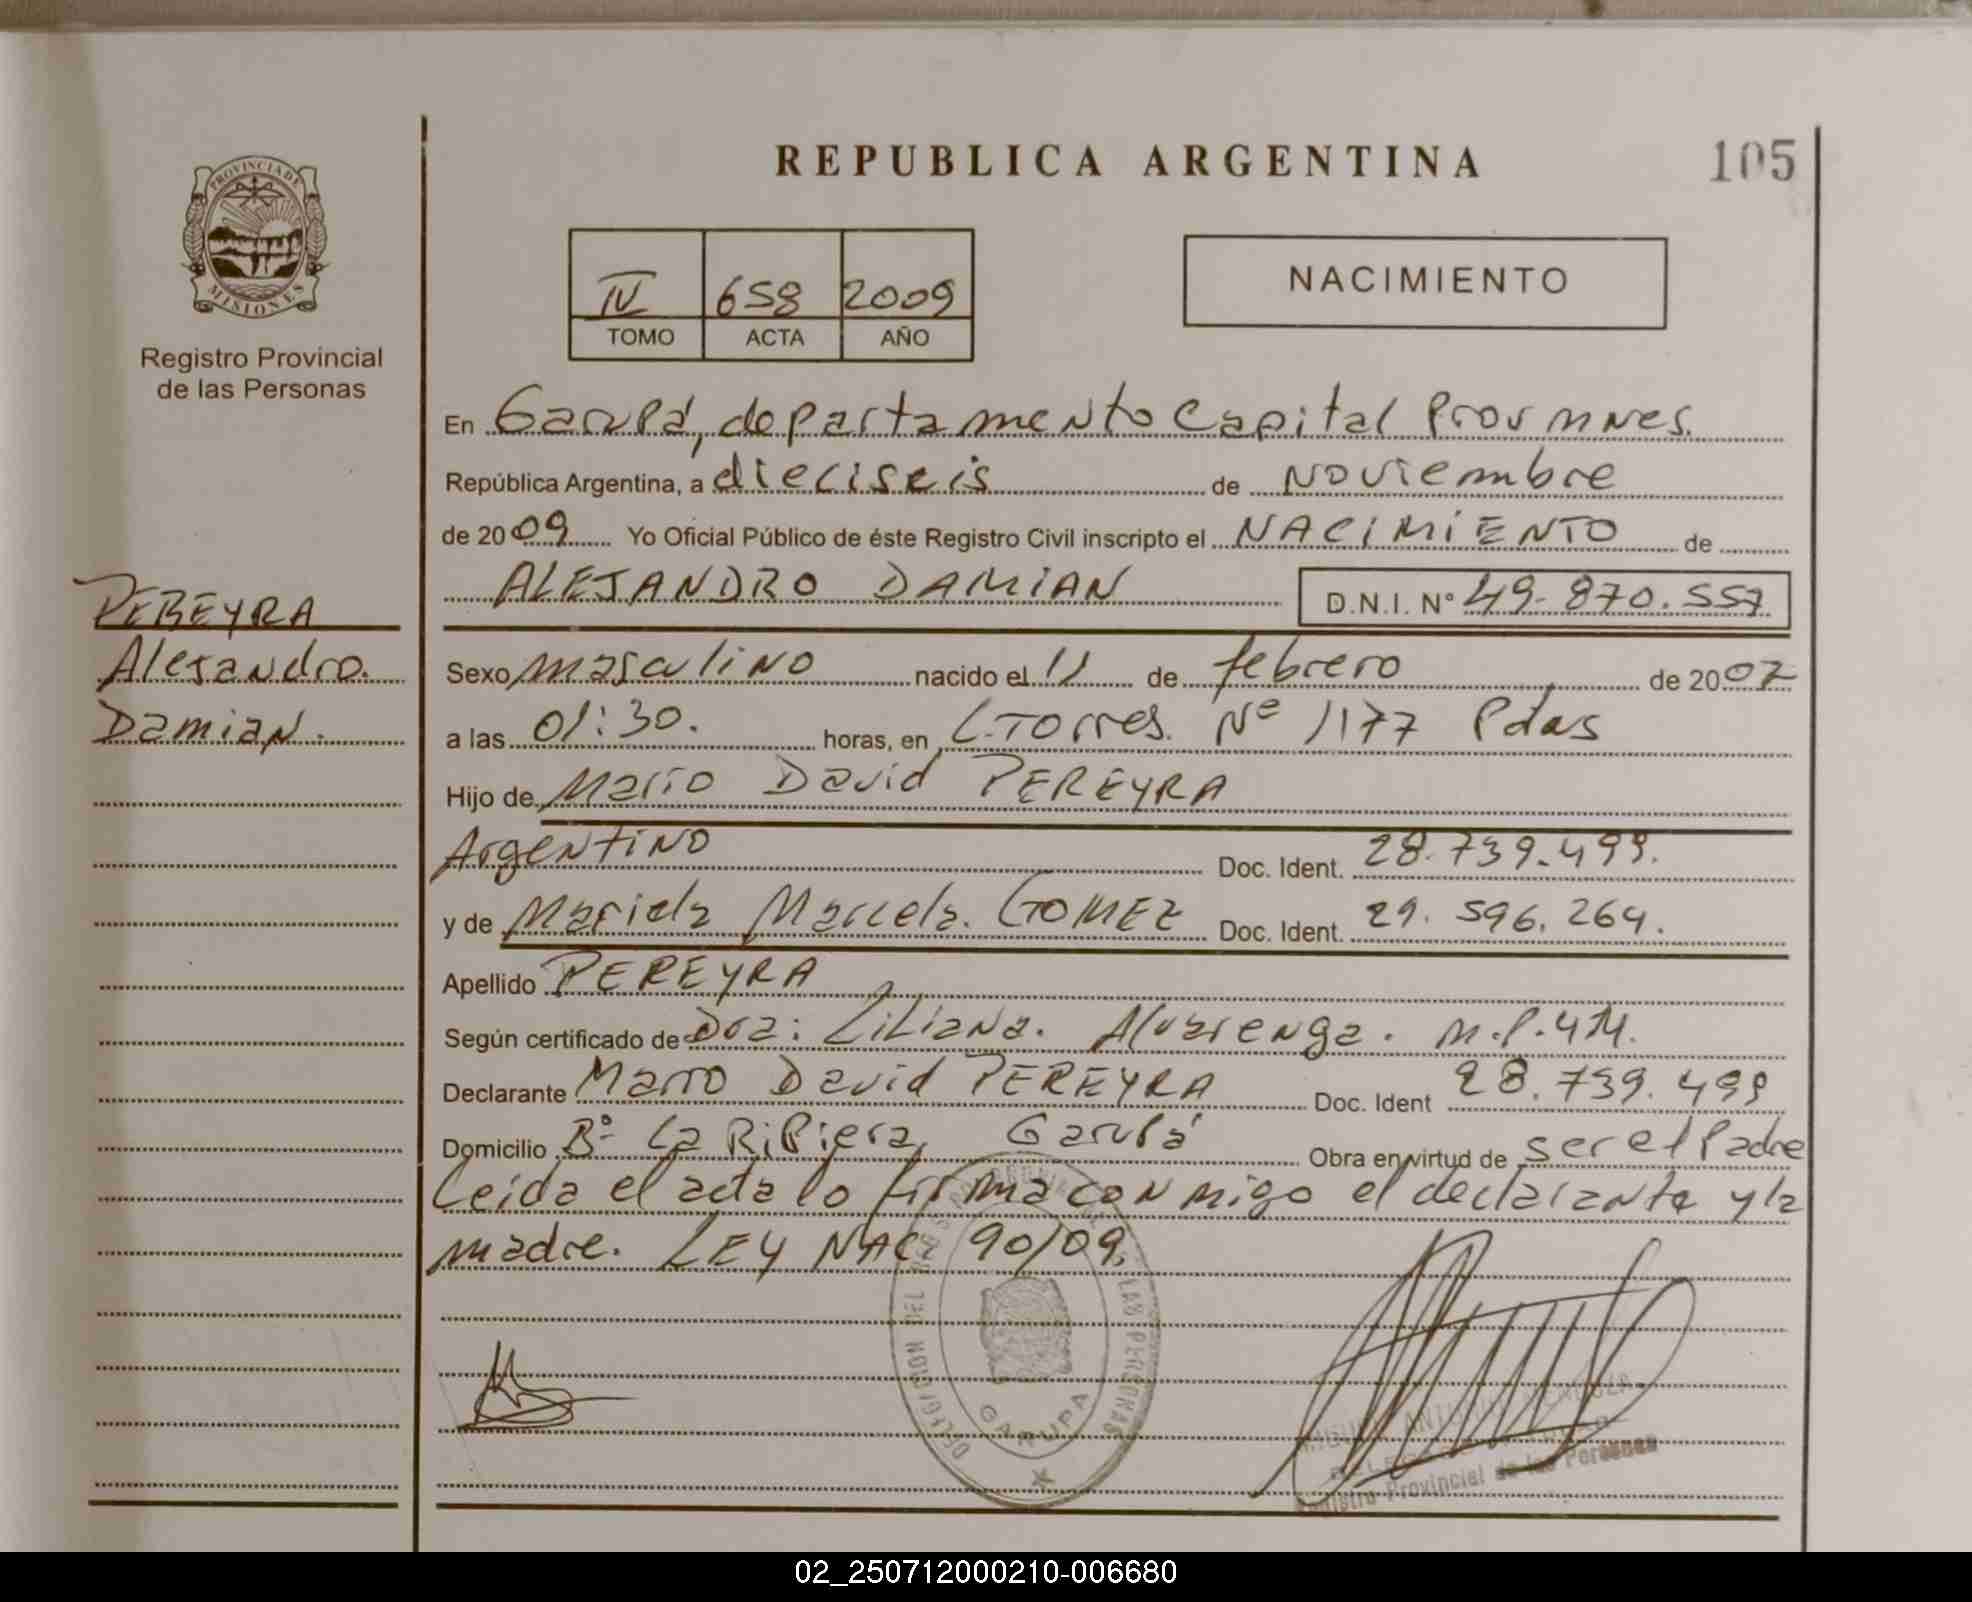 REPUBLICA ARGENTINA
105
PROVINCIA DE
MISIONES
Registro Provincial
de las Personas
IV 658 2009
TOMO ACTA AÑO
NACIMIENTO
En Garupá, departamento Capital Prov mnes.
República Argentina, a dieciseis de Noviembre
de 2009 Yo Oficial Público de éste Registro Civil inscripto el NACIMIENTO de
ALEJANDRO DAMIAN D.N.I. N° 49-870.557
PEREYRA
Alejandro.
Damian.
Sexo masculino nacido el 11 de febrero de 2007
a las 01:30. horas, en L.Torres. Nº 1177 Pdas
Hijo de Mario David PEREYRA
Argentino Doc. Ident. 28.739.499.
y de Mariela Marcela. GOMEZ Doc. Ident. 29.596.264.
Apellido PEREYRA
Según certificado de Dra: Liliana. Alvarenga. M.P.
Declarante Mario David PEREYRA Doc. Ident 28.739.499
Domicilio Bº La Ribiera, Garupá Obra en virtud de ser el Padre
Leida el acta lo firma conmigo el declarante y la
madre. LEY NAC 90/09.
DELEGACION DEL REGISTRO PROVINCIAL DE LAS PERSONAS
GARUPA
MIGUEL ANTONIO MENDOZA
Registro Provincial de las Personas
02_250712000210-006680